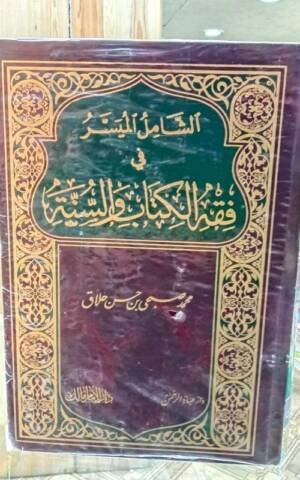 الشَّامِلُ المُيَسَّرُ
في
فِقْهِ الكِتَابِ وَالسُّنَّةِ
محمد صبحي بن حسن حلاق
دار عباد الرحمن
دار الإمام مالك